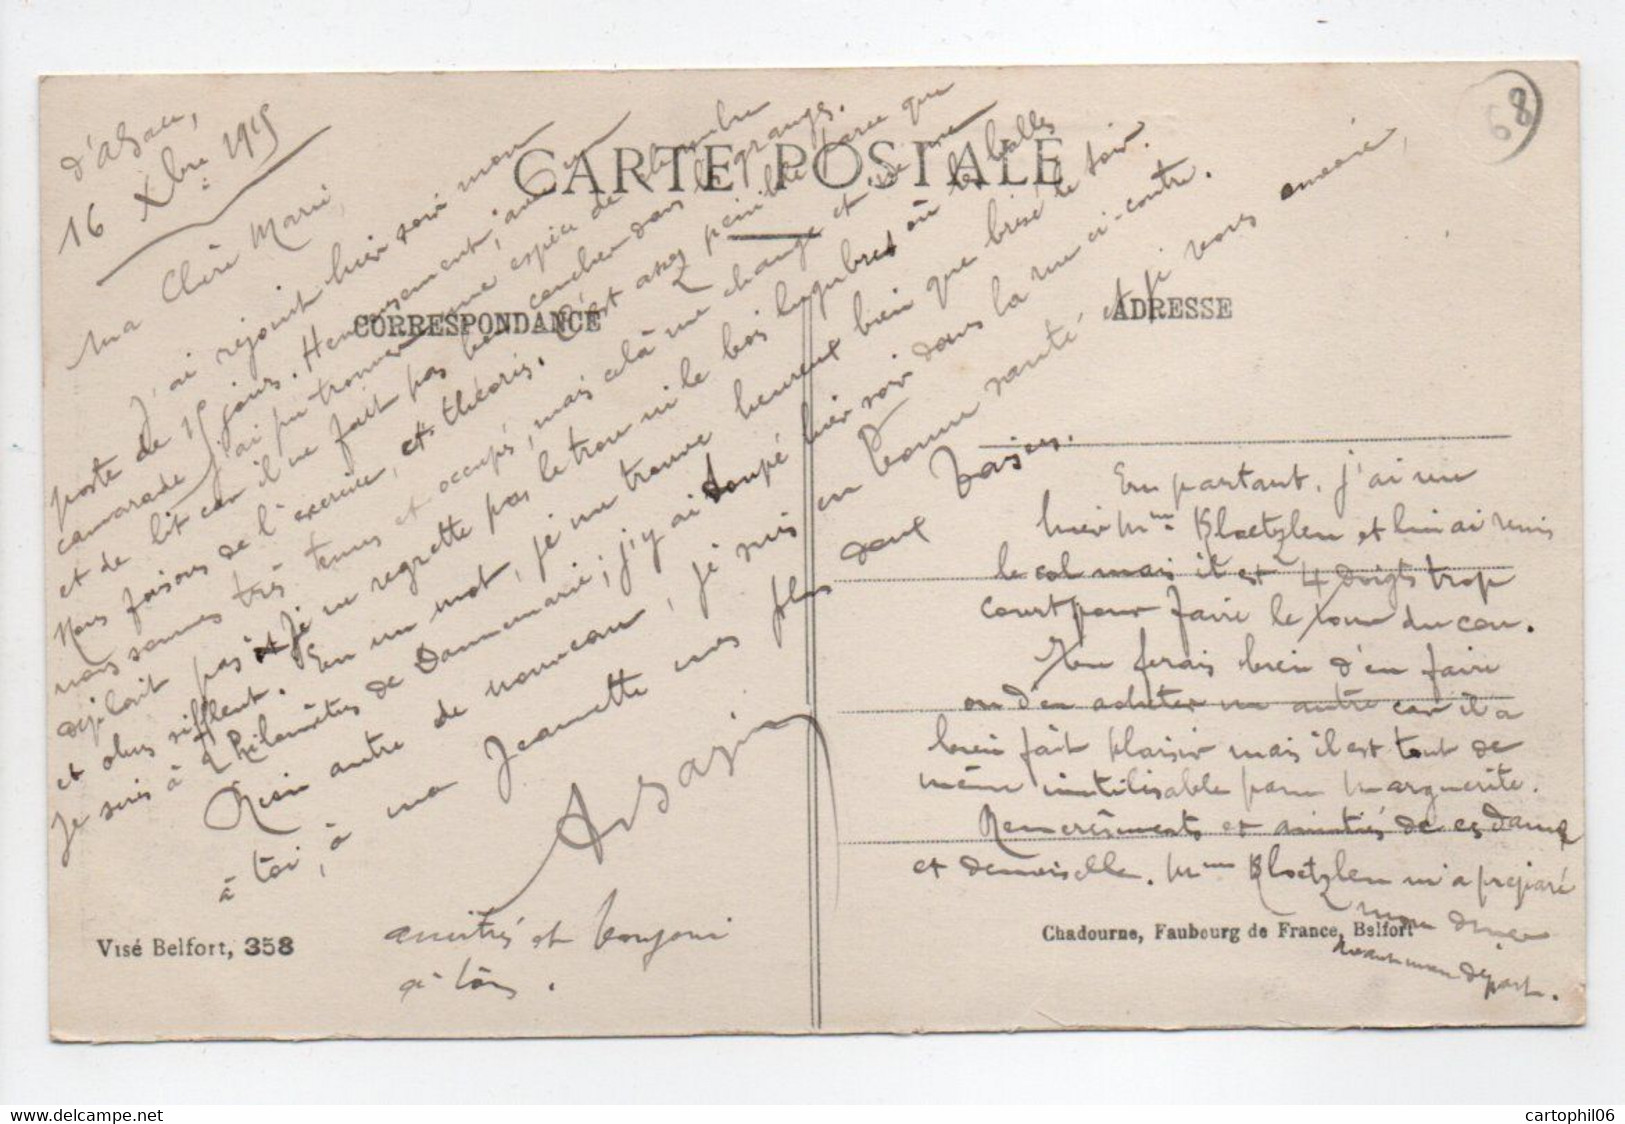 CARTE POSTALE
CORRESPONDANCE
ADRESSE
68
d'Alsace,
16 Xbre 1915
Ma Chère Marie,
J'ai rejoint hier soir mon
poste de 15 jours. Heureusement, avec un
camarade j'ai pu trouver une espèce de chambre
et de lit car il ne fait pas bon coucher dans la grange.
Nous faisons de l'exercice, et théorie. C'est assez pénible parce que
nous sommes très tenus et occupés, mais celà me change et ne me
déplait pas et je ne regrette pas le trou ni le bois lugubres où les balles
et obus sifflent. En un mot, je me trouve heureux bien que brisé le soir.
Je suis à 2 kilomètres de Dannemarie ; j'y ai soupé hier soir dans la rue ci-contre.
Rien autre de nouveau, je suis en bonne santé et je vous envoie,
à toi, à ma Jeannette mes plus doux baisers.
amitiés et bonjour
à tous.
En partant, j'ai vu
hier Mme Bloetzlen et lui ai remis
le col mais il est 4 doigts trop
court pour faire le tour du cou.
Tu ferais bien d'en faire
ou d'en acheter un autre car il a
bien fait plaisir mais il est tout de
même inutilisable pour Marguerite.
Remerciements et amitiés de ces dame
et demoiselle. Mme Bloetzlen m'a préparé
mon dîner
avant mon départ.
Visé Belfort, 358
Chadourne, Faubourg de France, Belfort
cartophil06